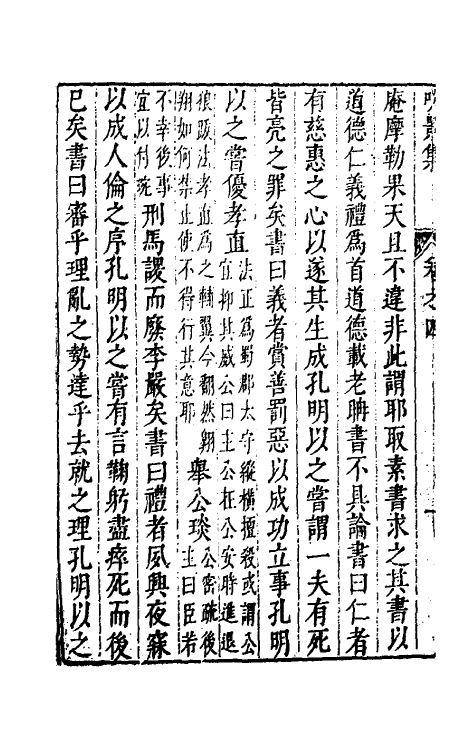 卷之四
菴摩勒果天且不違非此謂耶取素書求之其書以
道德仁義禮爲首道德載老聃書不具論書曰仁者
有慈惠之心以遂其生成孔明以之嘗謂一夫有死
皆亮之罪矣書曰義者賞善罰惡以成功立事孔明
以之嘗優孝直
法正爲蜀郡太守縱橫擅殺或謂公
宜抑其威公曰主公在公安時進退
狼跋法孝直爲之輔翼今翻然翱
翔如何禁止使不得行其意耶
舉公琰
公密疏後
主曰臣若
不幸後事
宜以付琬
刑馬謖而廢李嚴矣書曰禮者夙興夜寐
以成人倫之序孔明以之嘗有言鞠躬盡瘁死而後
已矣書曰審乎理亂之勢達乎去就之理孔明以之